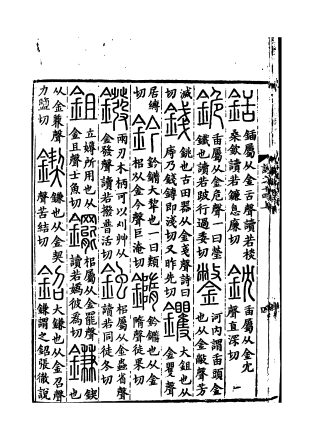 銛鍤屬从金舌聲讀若棪桑欽讀若鐮息廉切鈂臿屬从金冘聲直深切
鈯臿屬从金危聲一曰瑩鐵也讀若跛行過委切鐅河內謂臿頭金也从金敝聲芳
滅切錢銚也古田器从金戔聲詩曰庤乃錢鎛即淺切又昨先切钁大鉏也从金矍聲
居縛切鈐鈐䥩大犂也一曰類枱从金今聲巨淹切䥩鈐䥩也从金隋聲徒果切
鏺兩刃木柄可以刈艸从金發聲讀若撥普活切鉵枱屬从金蟲省聲讀若同徒冬切
鉏立薅所用也从金且聲士魚切䥯枱屬从金罷聲讀若嬀彼為切鎌鍥也
从金兼聲力鹽切鍥鎌也从金契聲苦結切鉊大鎌也从金召聲鎌謂之鉊張徹說